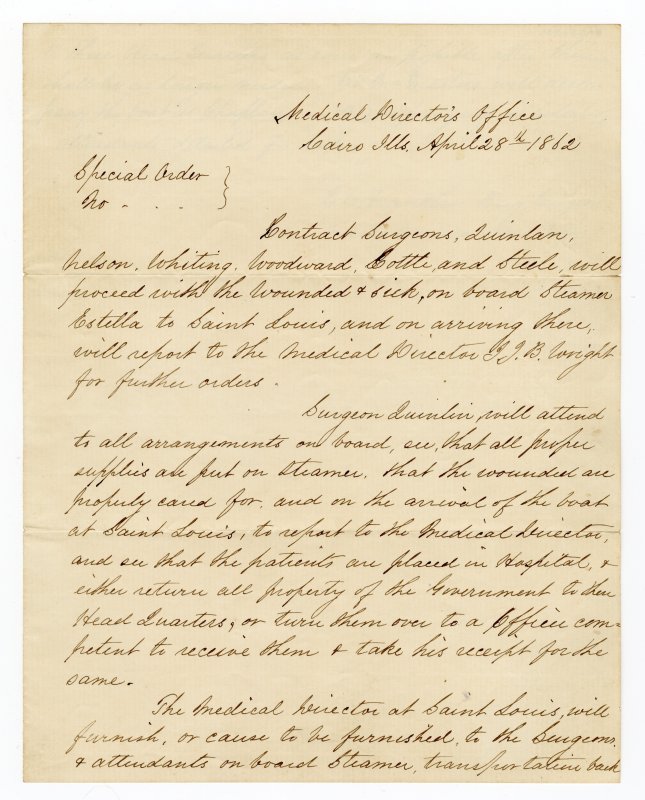 Medical Director's Office
Cairo Ills. April 28th 1862
Special Order }
No . . . }
Contract Surgeons, Quinlan,
Nelson, Whiting, Woodward, Cottle, and Steele, will
proceed with the Wounded & sick, on board Steamer
Estella to Saint Louis, and on arriving there,
will report to the Medical Director J.J.B. Wright
for further orders.
Surgeon Quinlin, will attend
to all arrangements on board, see, that all proper
supplies are put on Steamer. that the wounded are
properly cared for, and on the arrival of the boat
at Saint Louis, to report to the Medical Director,
and see that the patients are placed in Hospital, &
either return all property of the Government to these
Head Quarters, or turn them over to a Officer com=
petent to receive them & take his receipt for the
same.
The Medical Director at Saint Louis, will
furnish, or cause to be furnished, to the Surgeons,
& attendants on board Steamer, transportation back